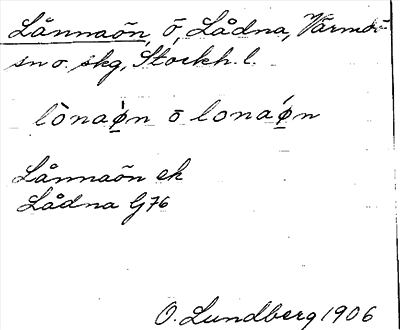 Lånnaön, ö, Lådna, Värmdö
sn o. skg, Stockh. l.
lònaø̀n ō lonaǿn
Lånnaön ek
Lådna G76
O. Lundberg 1906